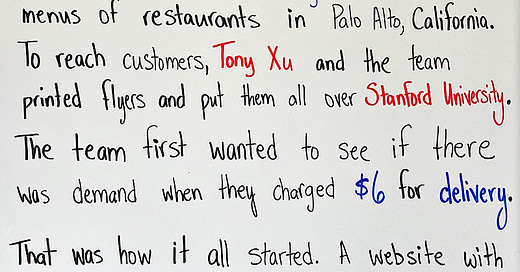 menus of restaurants in Palo Alto, California.
To reach customers, Tony Xu and the team
printed flyers and put them all over Stanford University.
The team first wanted to see if there
was demand when they charged $6 for delivery.
That was how it all started. A website with